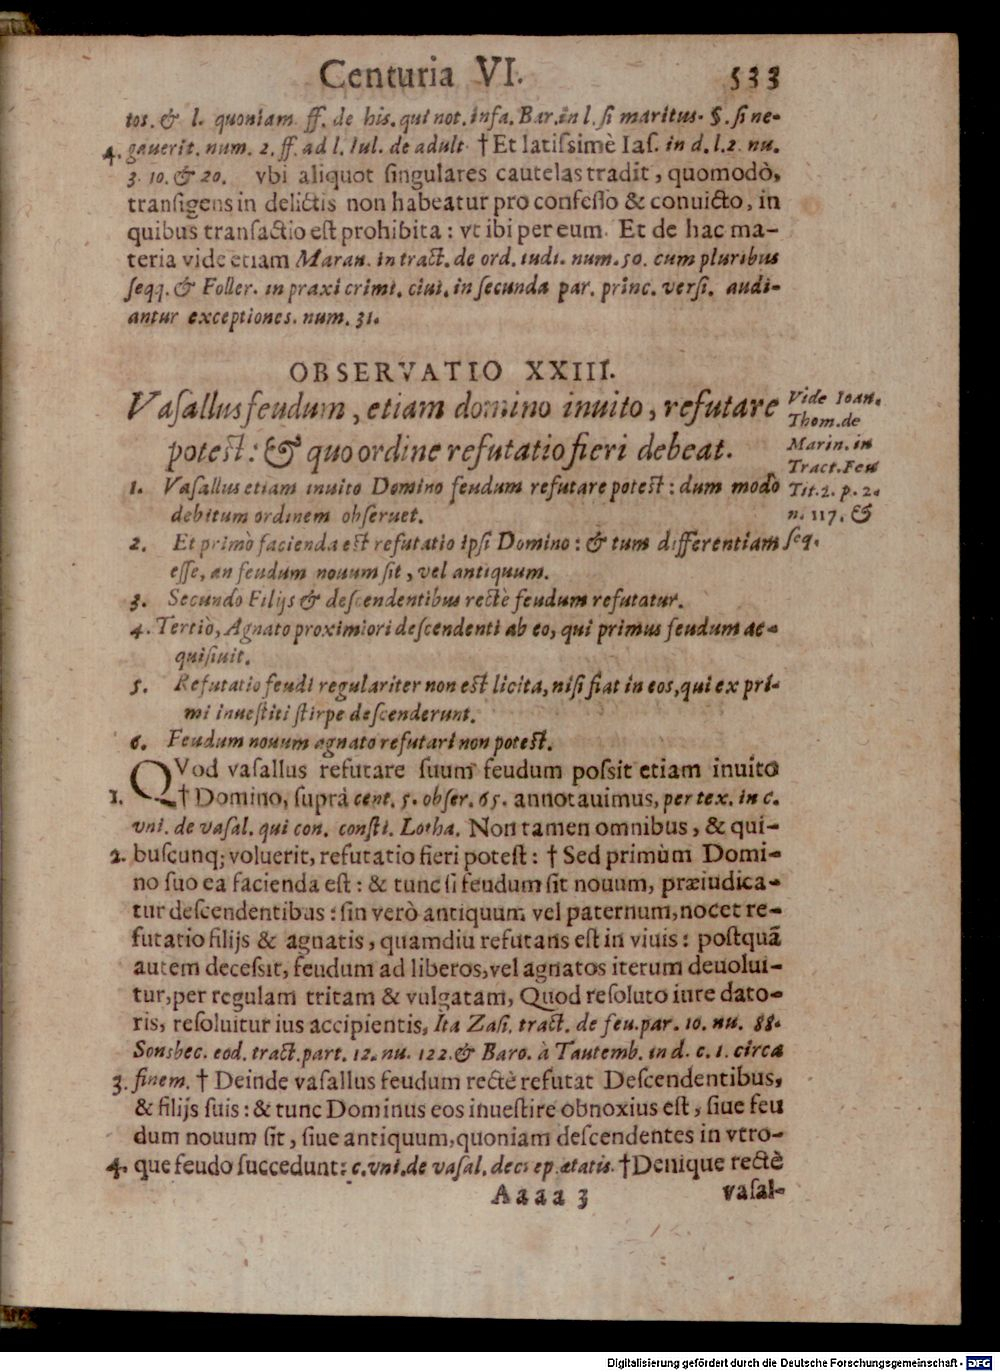 Centuria VI. 533
tos. & l. quoniam ff. de his. qui not. infa. Bar. in l. ſi maritus. §. ſi ne-
4. gauerit. num. 2. ff. ad l. Iul. de adult †Et latiſsimè Iaſ. in d. l. 2. nu.
3. 10. & 20. vbi aliquot ſingulares cautelas tradit, quomodò,
tranſigens in delictis non habeatur pro confeſſo & conuicto, in
quibus tranſactio eſt prohibita: vt ibi per eum. Et de hac ma-
teria vide etiam Maran. in tract. de ord. iudi. num. 50. cum pluribus
ſeqq. & Foller. in praxi crimi. ciui. in ſecunda par. princ. verſi. audi-
antur exceptiones. num. 31.
OBSERVATIO XXIII.
Vaſallus feudum, etiam domino inuito, refutare
poteſt: & quo ordine refutatio fieri debeat.
Vide Ioan.
Thom. de
Marin. in
Tract. Feu
Tit. 2. p. 2.
n. 117. &
ſeq.
1. Vaſallus etiam inuito Domino feudum refutare poteſt: dum modo
debitum ordinem obſeruet.
2. Et primò facienda eſt refutatio ipſi Domino: & tum differentiam
eſſe, an feudum nouum ſit, vel antiquum.
3. Secundo Filijs & deſcendentibus rectè feudum refutatur.
4. Tertiò, Agnato proximiori deſcendenti ab eo, qui primus feudum ac-
quiſiuit.
5. Refutatio feudi regulariter non eſt licita, niſi fiat in eos, qui ex pri-
mi inueſtiti ſtirpe deſcenderunt.
6. Feudum nouum agnato refutari non poteſt.
QVod vaſallus refutare ſuum feudum poſsit etiam inuito
1. †Domino, ſuprà cent. 5. obſer. 65. annotauimus, per tex. in c.
vni. de vaſal. qui con. conſti. Lotha. Non tamen omnibus, & qui-
2. buſcunq; voluerit, refutatio fieri poteſt: † Sed primùm Domi-
no ſuo ea facienda eſt: & tunc ſi feudum ſit nouum, præiudica-
tur deſcendentibus: ſin verò antiquum vel paternum, nocet re-
futatio filijs & agnatis, quamdiu refutans eſt in viuis: poſtquã
autem deceſsit, feudum ad liberos, vel agnatos iterum deuolui-
tur, per regulam tritam & vulgatam, Quod reſoluto iure dato-
ris, reſoluitur ius accipientis, Ita Zaſi. tract. de feu. par. 10. nu. 88.
Sonsbec. eod. tract. part. 12. nu. 122. & Baro. à Tautemb. in d. c. 1. circa
3. finem. † Deinde vaſallus feudum rectè refutat Deſcendentibus,
& filijs ſuis: & tunc Dominus eos inueſtire obnoxius eſt, ſiue feu
dum nouum ſit, ſiue antiquum, quoniam deſcendentes in vtro-
4. que feudo ſuccedunt: c. vni. de vaſal. decrep. ætatis. †Denique rectè
Aaaa 3 vaſal-
Digitalisierung gefördert durch die Deutsche Forschungsgemeinschaft - DFG